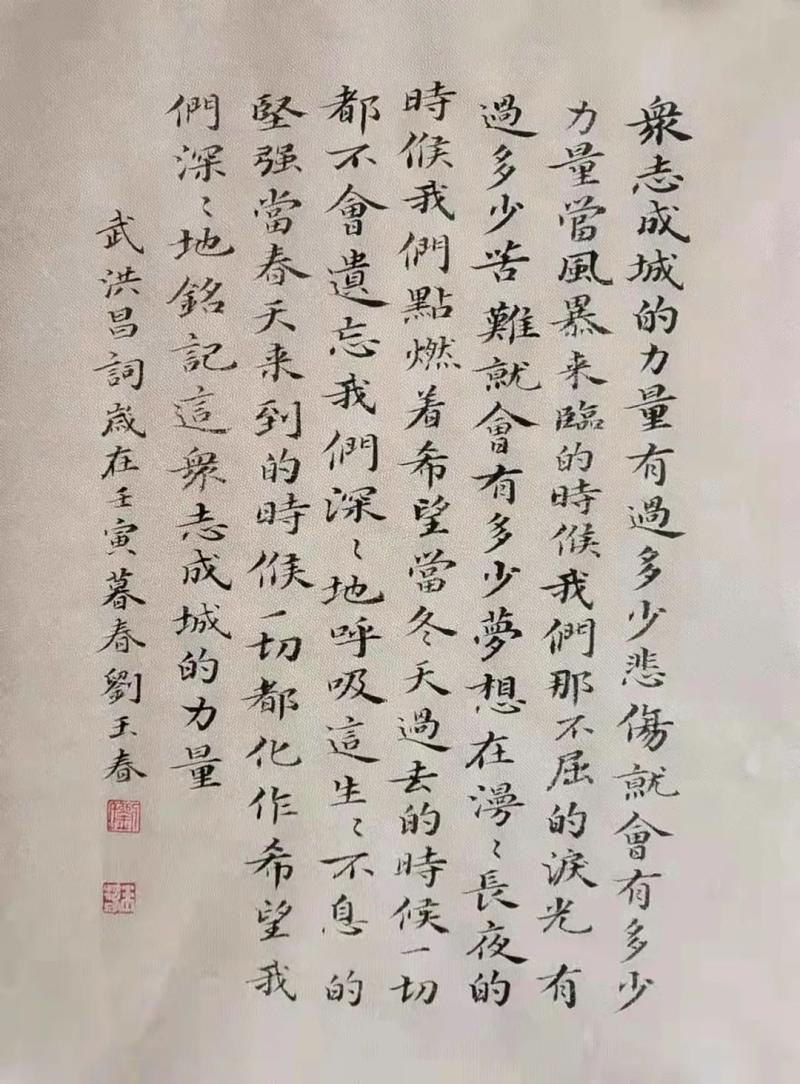 衆志成城的力量有過多少悲傷就會有多少
力量當風暴来臨的時候我們那不屈的淚光有
過多少苦難就會有多少夢想在漫〻長夜的
時候我們點燃着希望當冬天過去的時候一切
都不會遺忘我們深〻地呼吸這生〻不息的
堅强當春天来到的時候一切都化作希望我
們深〻地銘記這衆志成城的力量
武洪昌詞歲在壬寅暮春劉玉春